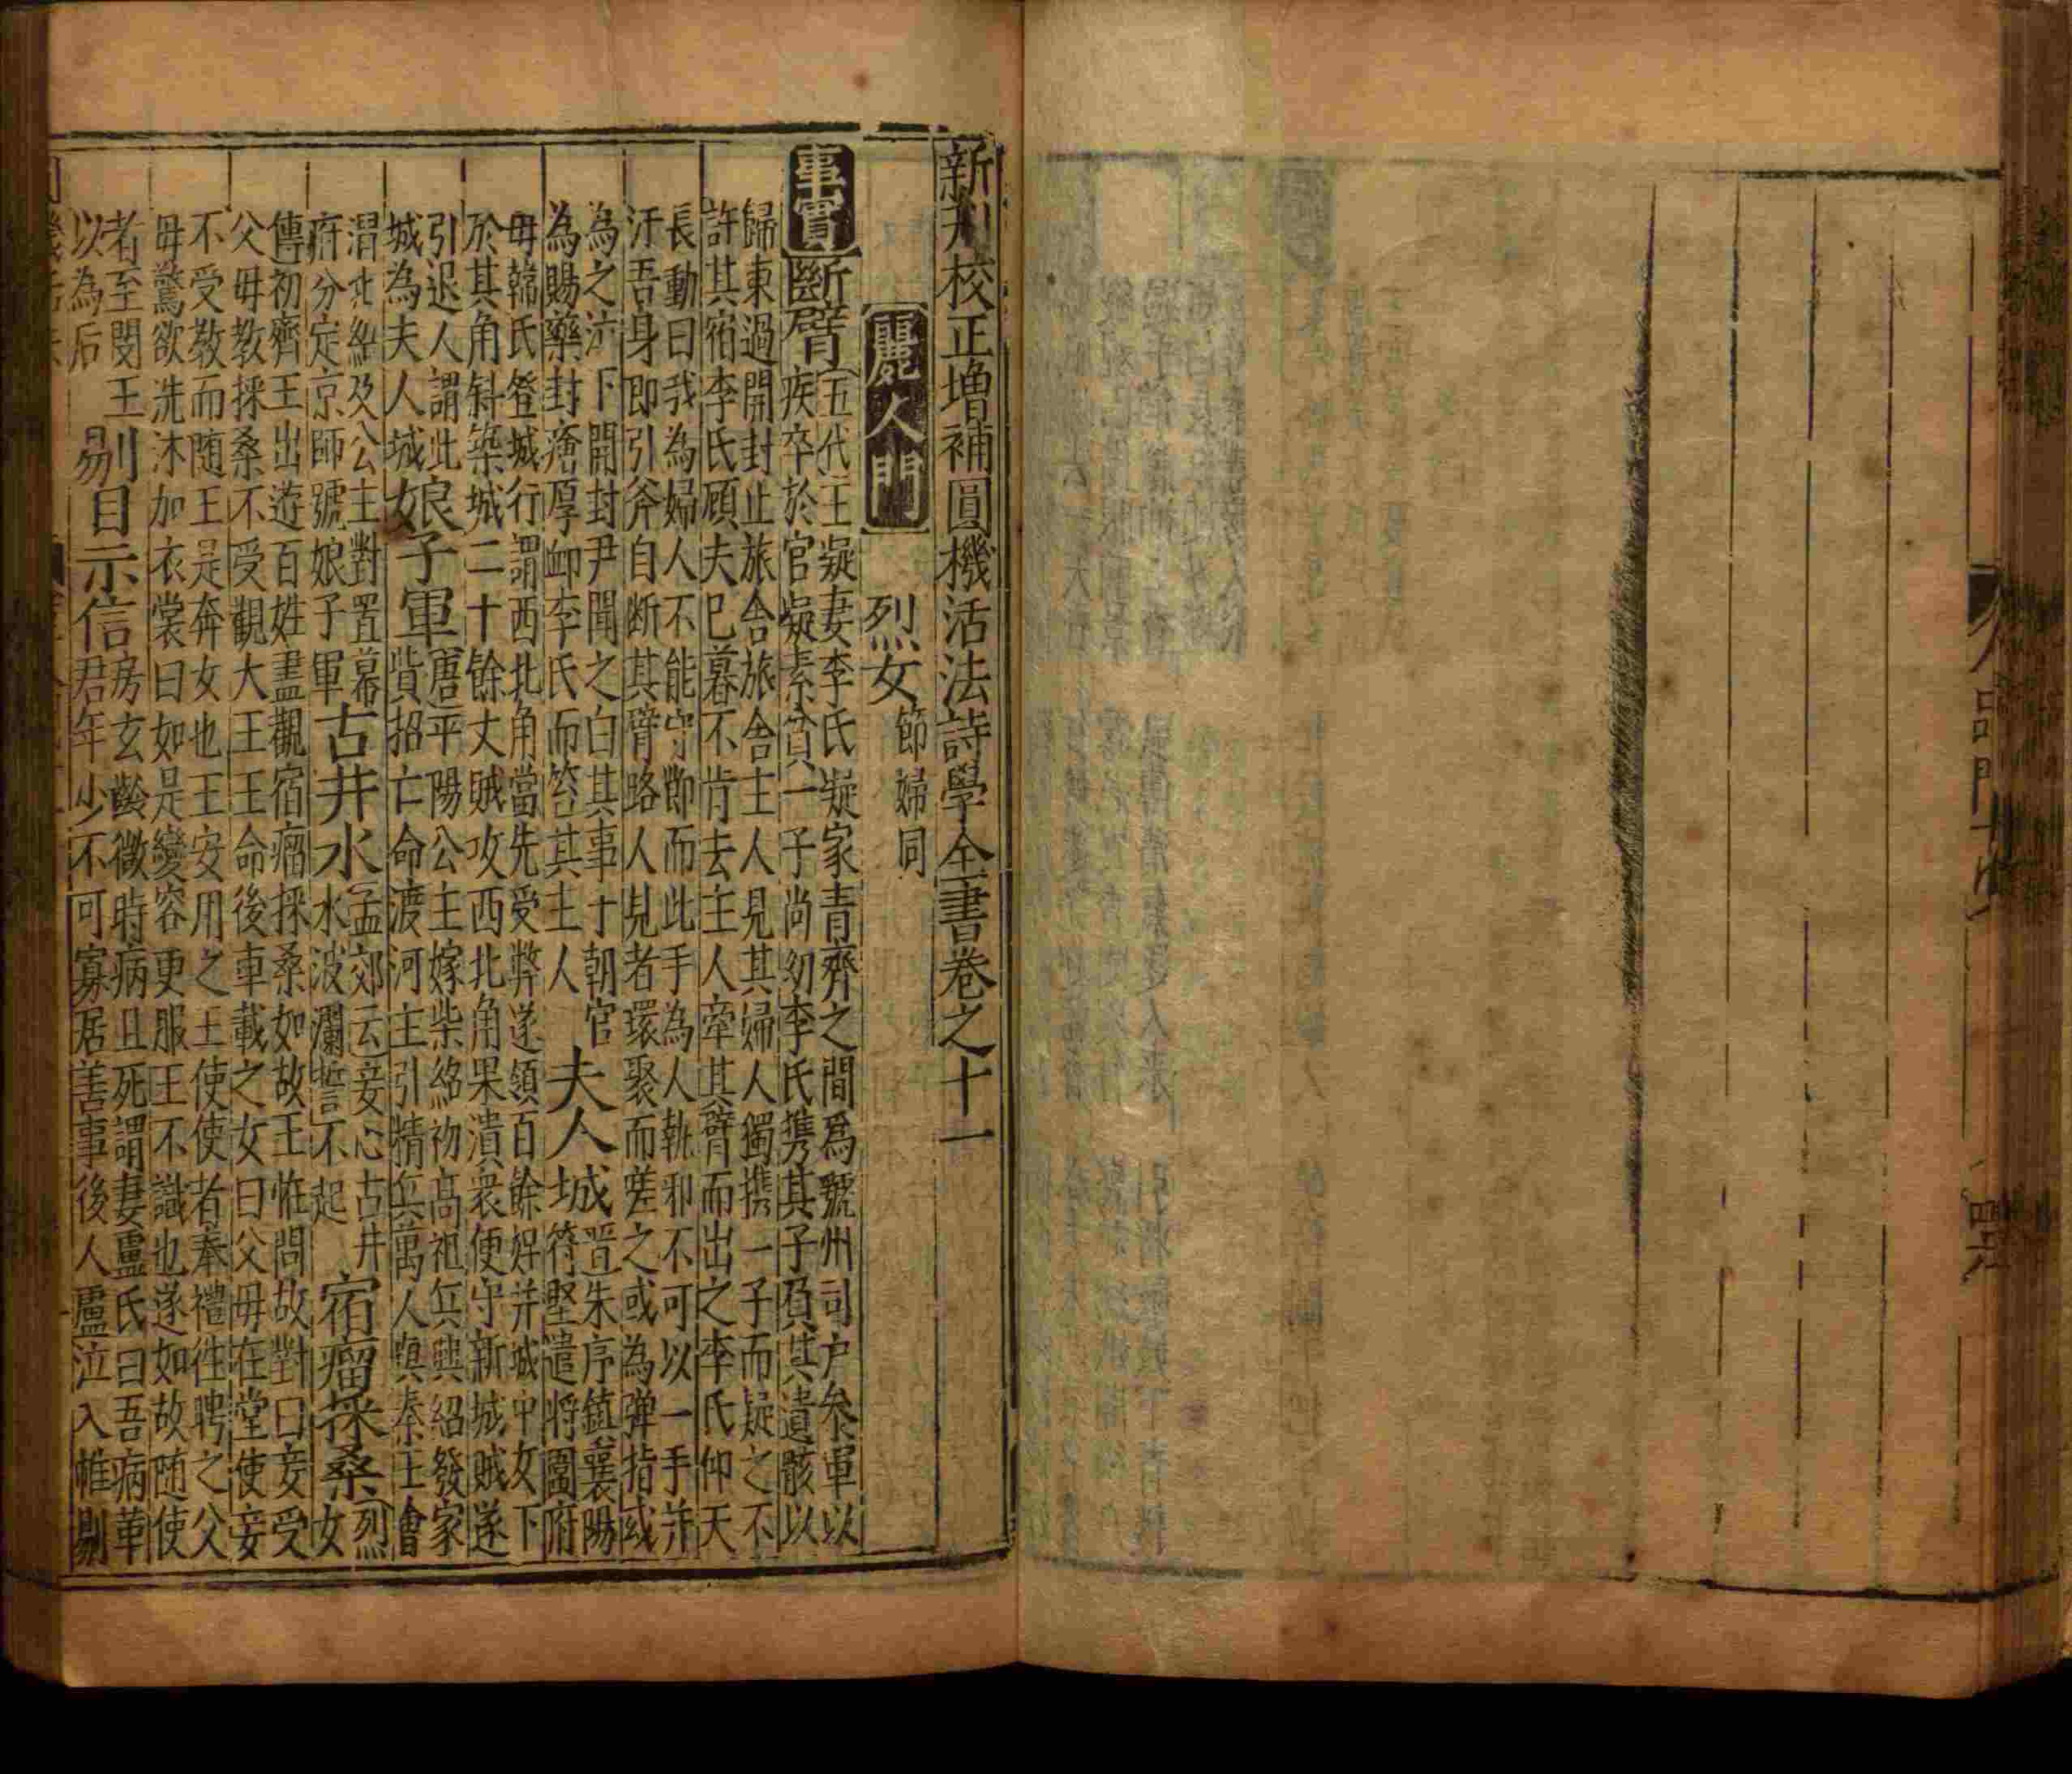 人品門
四六
新刊校正增補圓機活法詩學全書卷之十一
麗人門
烈女 節婦同
事實 斷臂 五代王凝妻李氏凝家青齊之間爲虢州司户叅軍以
疾卒於官凝素貧一子尚幼李氏携其子負其遺骸以
歸東過開封止旅舍旅舍主人見其婦人獨携一子而疑之不
許其宿李氏顧夫已暮不肯去主人牽其臂而出之李氏仰天
長動曰我為婦人不能守節而此手為人執邪不可以一手并
汙吾身即引斧自断其臂路人見者環聚而嗟之或為彈指或
為之泣下開封尹聞之白其事于朝官
為賜藥封瘡厚卹李氏而笞其主人
夫人城 晋朱序鎮襄陽
符堅遣將圍府
毋韓氏登城行謂西北角當先受弊遂領百餘婢并城中女下
於其角斜築城二十餘丈賊攻西北角果潰衆便守新城賊遂
引退人謂此
城為夫人城
娘子軍 唐平陽公主嫁柴紹初高祖兵興紹發家
貲招亡命渡河主引精兵萬人與秦王會
渭北紹及公主對置幕
府分定京師號娘子軍
古井水 孟郊云妾心古井
水水波瀾誓不起
宿瘤採桑 烈
女
傳初齊王出遊百姓盡觀宿瘤採桑如故王恠問故對曰妾受
父毋教採桑不受觀大王王命後車載之女曰父毋在堂使妾
不受教而随王是奔女也王安用之王使使者奉禮徃聘之父
毋驚欲洗沐加衣裳曰如是變容更服王不識也遂如故随使
者至閔王
以為后
剔目示信 房玄齡微時病且死謂妻盧氏曰吾病革
君年少不可寡居善事後人盧泣入帷剔